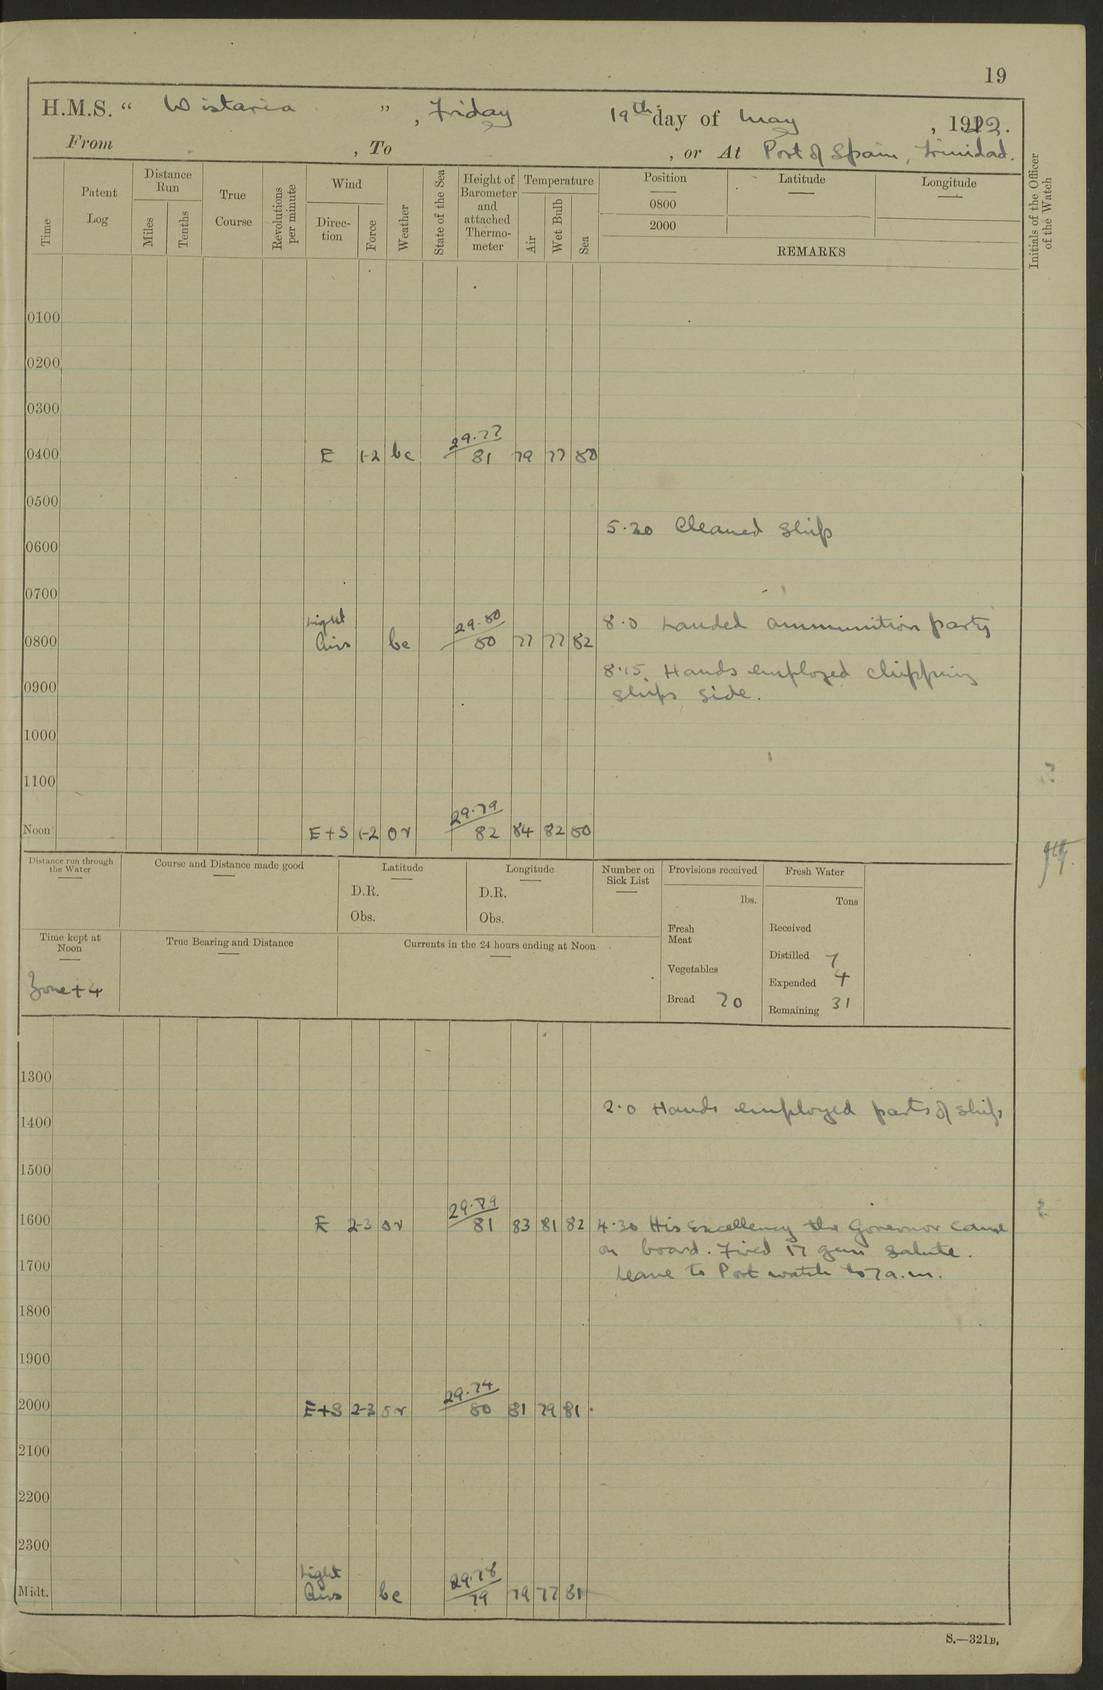 19
H.M.S. “ Wistaria ” , Friday 19th day of May , 1922.
From , To , or At Port of Spain, Trinidad.
Time
Patent Log
Distance Run
Miles
Tenths
True Course
Revolutions per minute
Wind
Direction
Force
Weather
State of the Sea
Height of Barometer and attached Thermometer
Temperature
Air
Wet Bulb
Sea
Position Latitude Longitude
0800
2000
REMARKS
Initials of the Officer of the Watch
0100
0200
0300
0400 E 1-2 bc 29.77 81 79 77 80
0500
5.20 Cleaned Ship
0600
0700
0800 Light Airs bc 29.80 80 77 77 82
8.0 Landed ammunition party
8.15. Hands employed chipping
0900
ships side.
1000
1100
Noon E+S 1-2 or 29.79 82 84 82 80
Distance run through the Water
Course and Distance made good
Latitude
D.R.
Obs.
Longitude
D.R.
Obs.
Number on Sick List
Provisions received
lbs.
Fresh Meat
Vegetables
Bread 70
Fresh Water
Tons
Received
Distilled 7
Expended 4
Remaining 31
Time kept at Noon
Zone + 4
True Bearing and Distance
Currents in the 24 hours ending at Noon
1300
2.0 Hands employed parts of ship
1400
1500
1600 E 2-3 or 29.79 81 83 81 82
4.30 His Excellency the Governor came
on board. Fired 17 gun salute.
1700
Leave to Port watch to 7 a.m.
1800
1900
2000 E+S 2-3 or 29.74 80 81 79 81
2100
2200
2300
Midt. Light Airs bc 29.78 79 79 77 81
S.—321B.